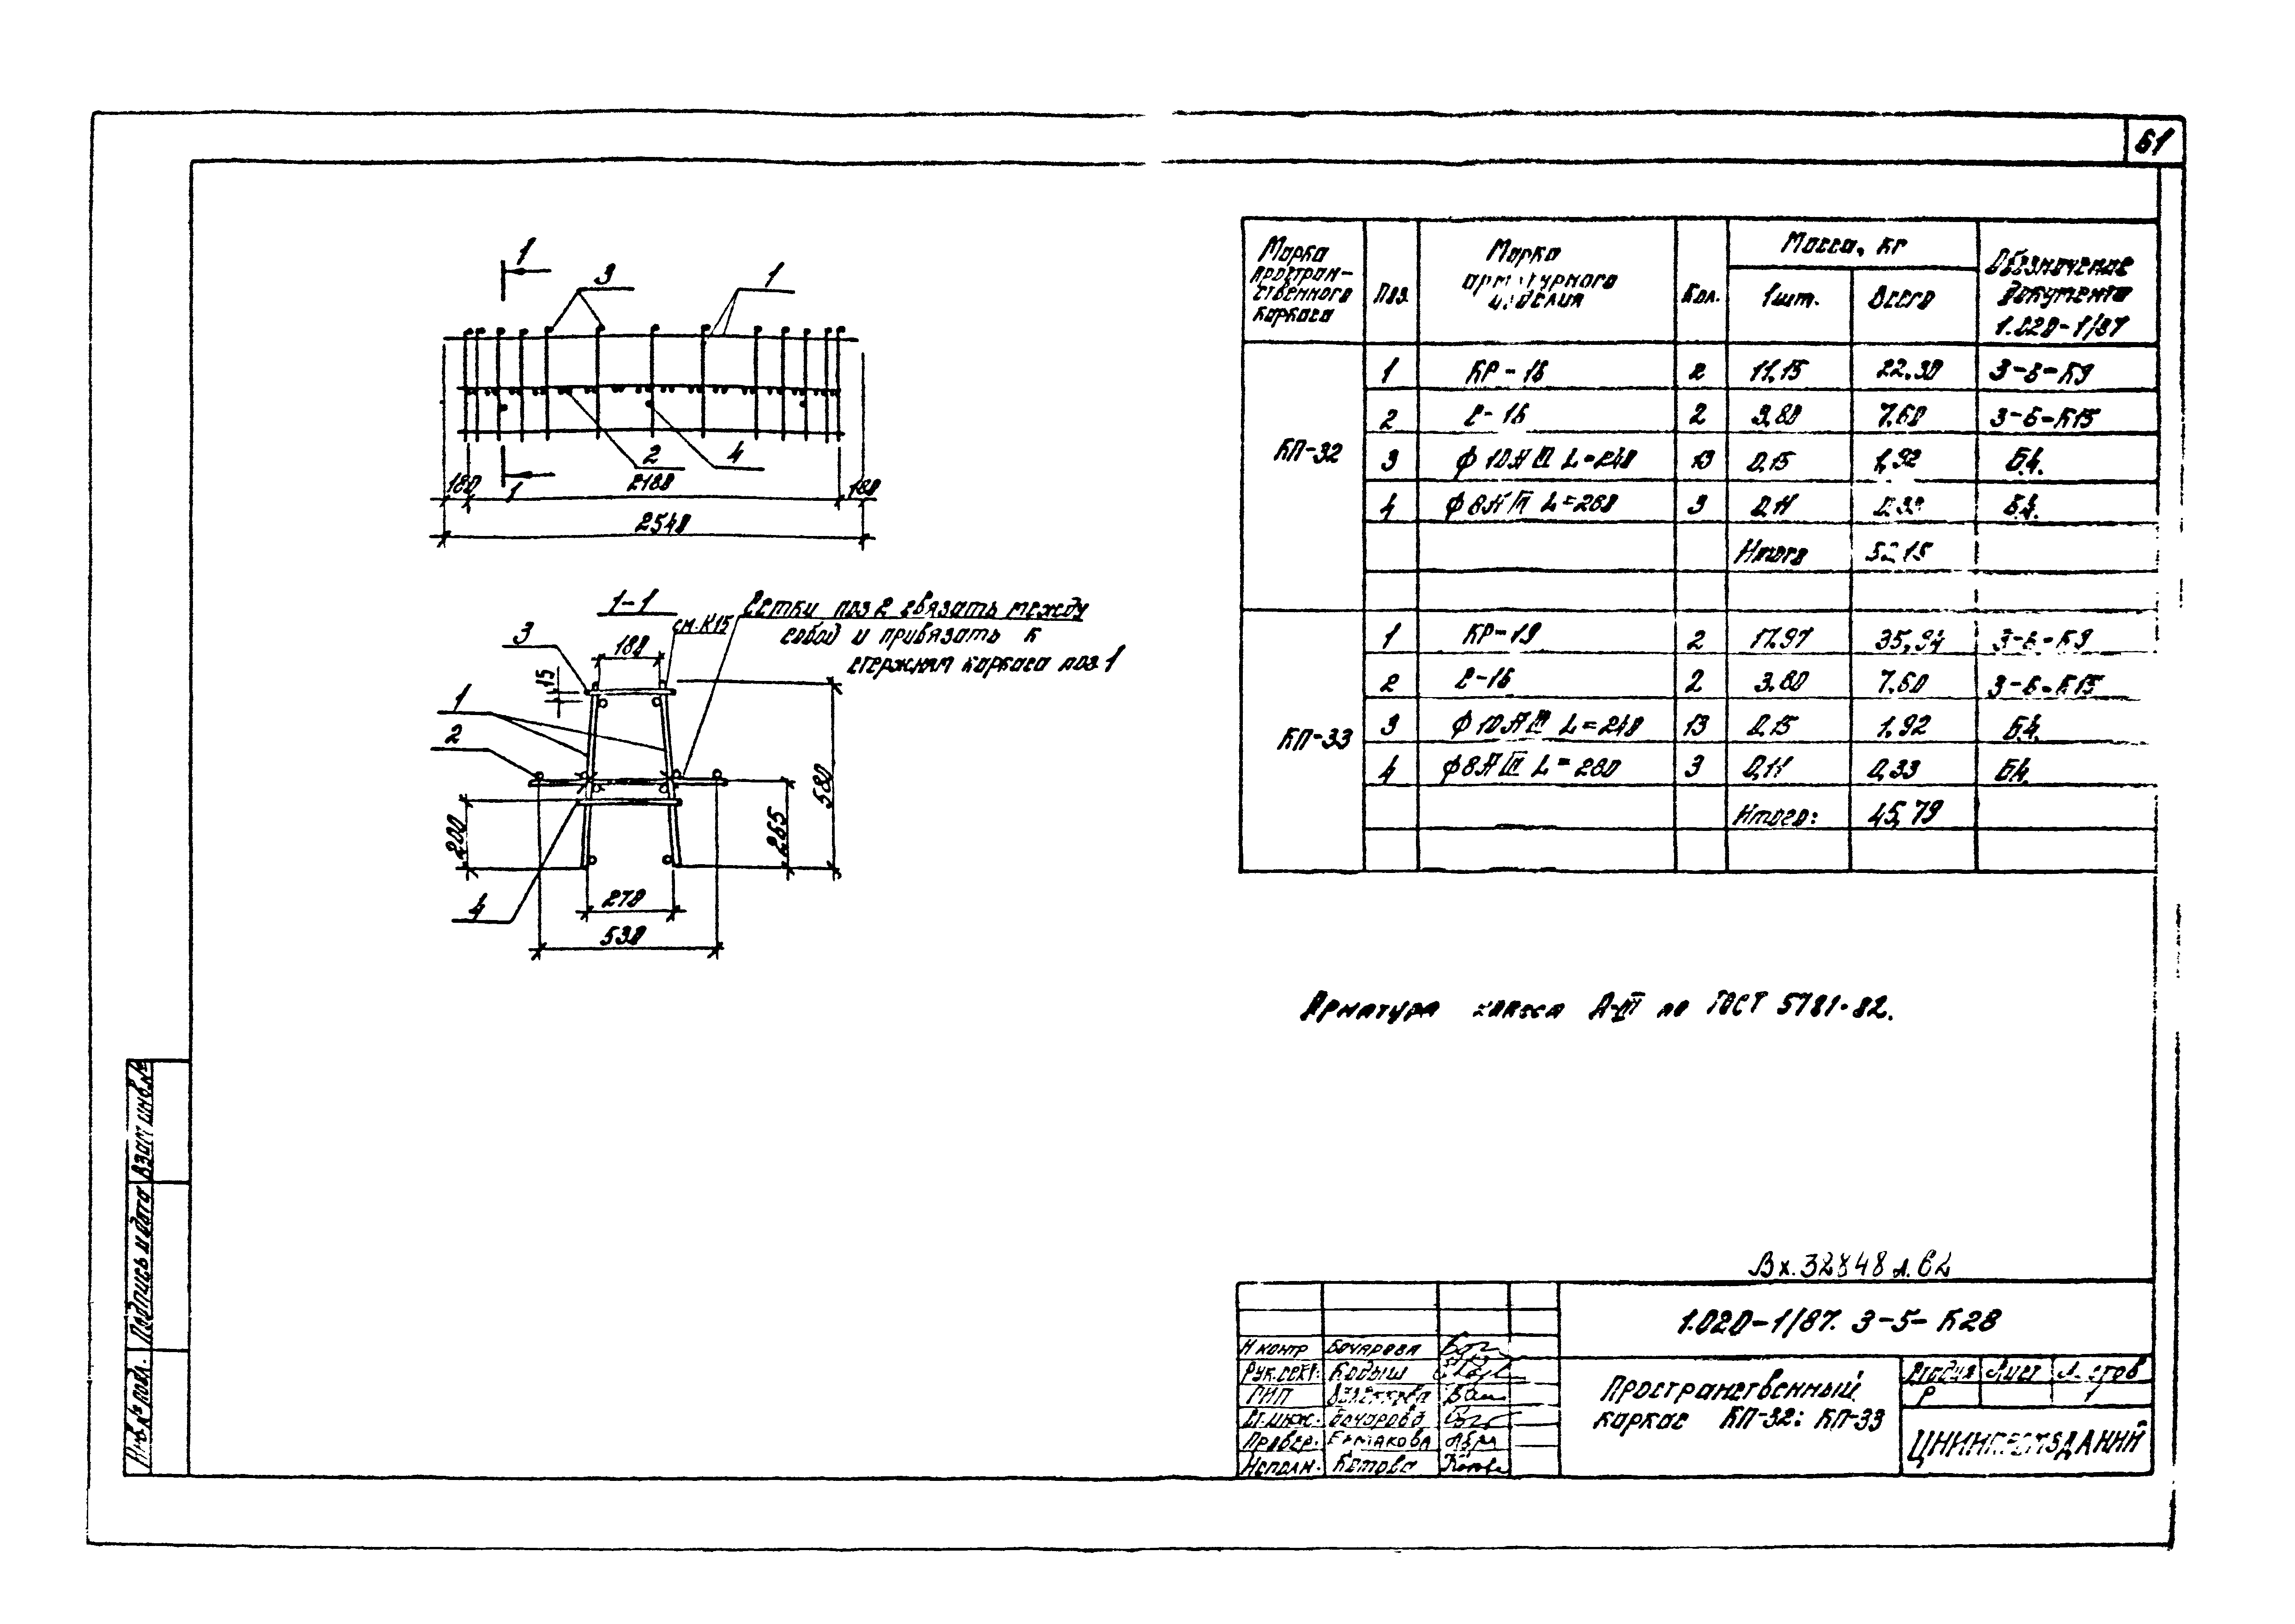 61
1
3
1
2
4
180
1
2180
180
2540
1-1
Сетки поз 2 связать между
собой и привязать к
стержням каркаса поз.1
см.К15
3
180
15
1
2
580
265
200
4
270
530
Марка пространственного каркаса
Поз.
Марка арматурного изделия
Кол.
Масса, кг
1шт.
Всего
Обозначение документа 1.020-1/87
КП-32
1 КР-16 2 11,15 22,30 3-5-К9
2 С-16 2 3,80 7,60 3-5-К15
3 ф10АIII L=240 13 0,15 1,92 Б.ч.
4 ф8АIII L=280 3 0,11 0,33 Б.ч.
Итого
КП-33
1 КР-19 2 17,97 35,94 3-5-К9
2 С-16 2 3,80 7,60 3-5-К15
3 ф10АIII L=240 13 0,15 1,92 Б.ч.
4 ф8АIII L=280 3 0,11 0,33 Б.ч.
Итого: 45,79
Арматура класса А-III по ГОСТ 5781-82.
Вх.32848 л.62
1.020-1/87. 3-5-К28
Н контр Бочарова
Рук.сект. Кодыш
ГИП
Ст.инж. Бочарова
Провер. Ермакова
Исполн. Котова
Пространственный
каркас КП-32; КП-33
Стадия Лист Листов
Р 1
ЦНИИПРОМЗДАНИЙ
Взам инв.№
Подпись и дата
Инв.№ подл.